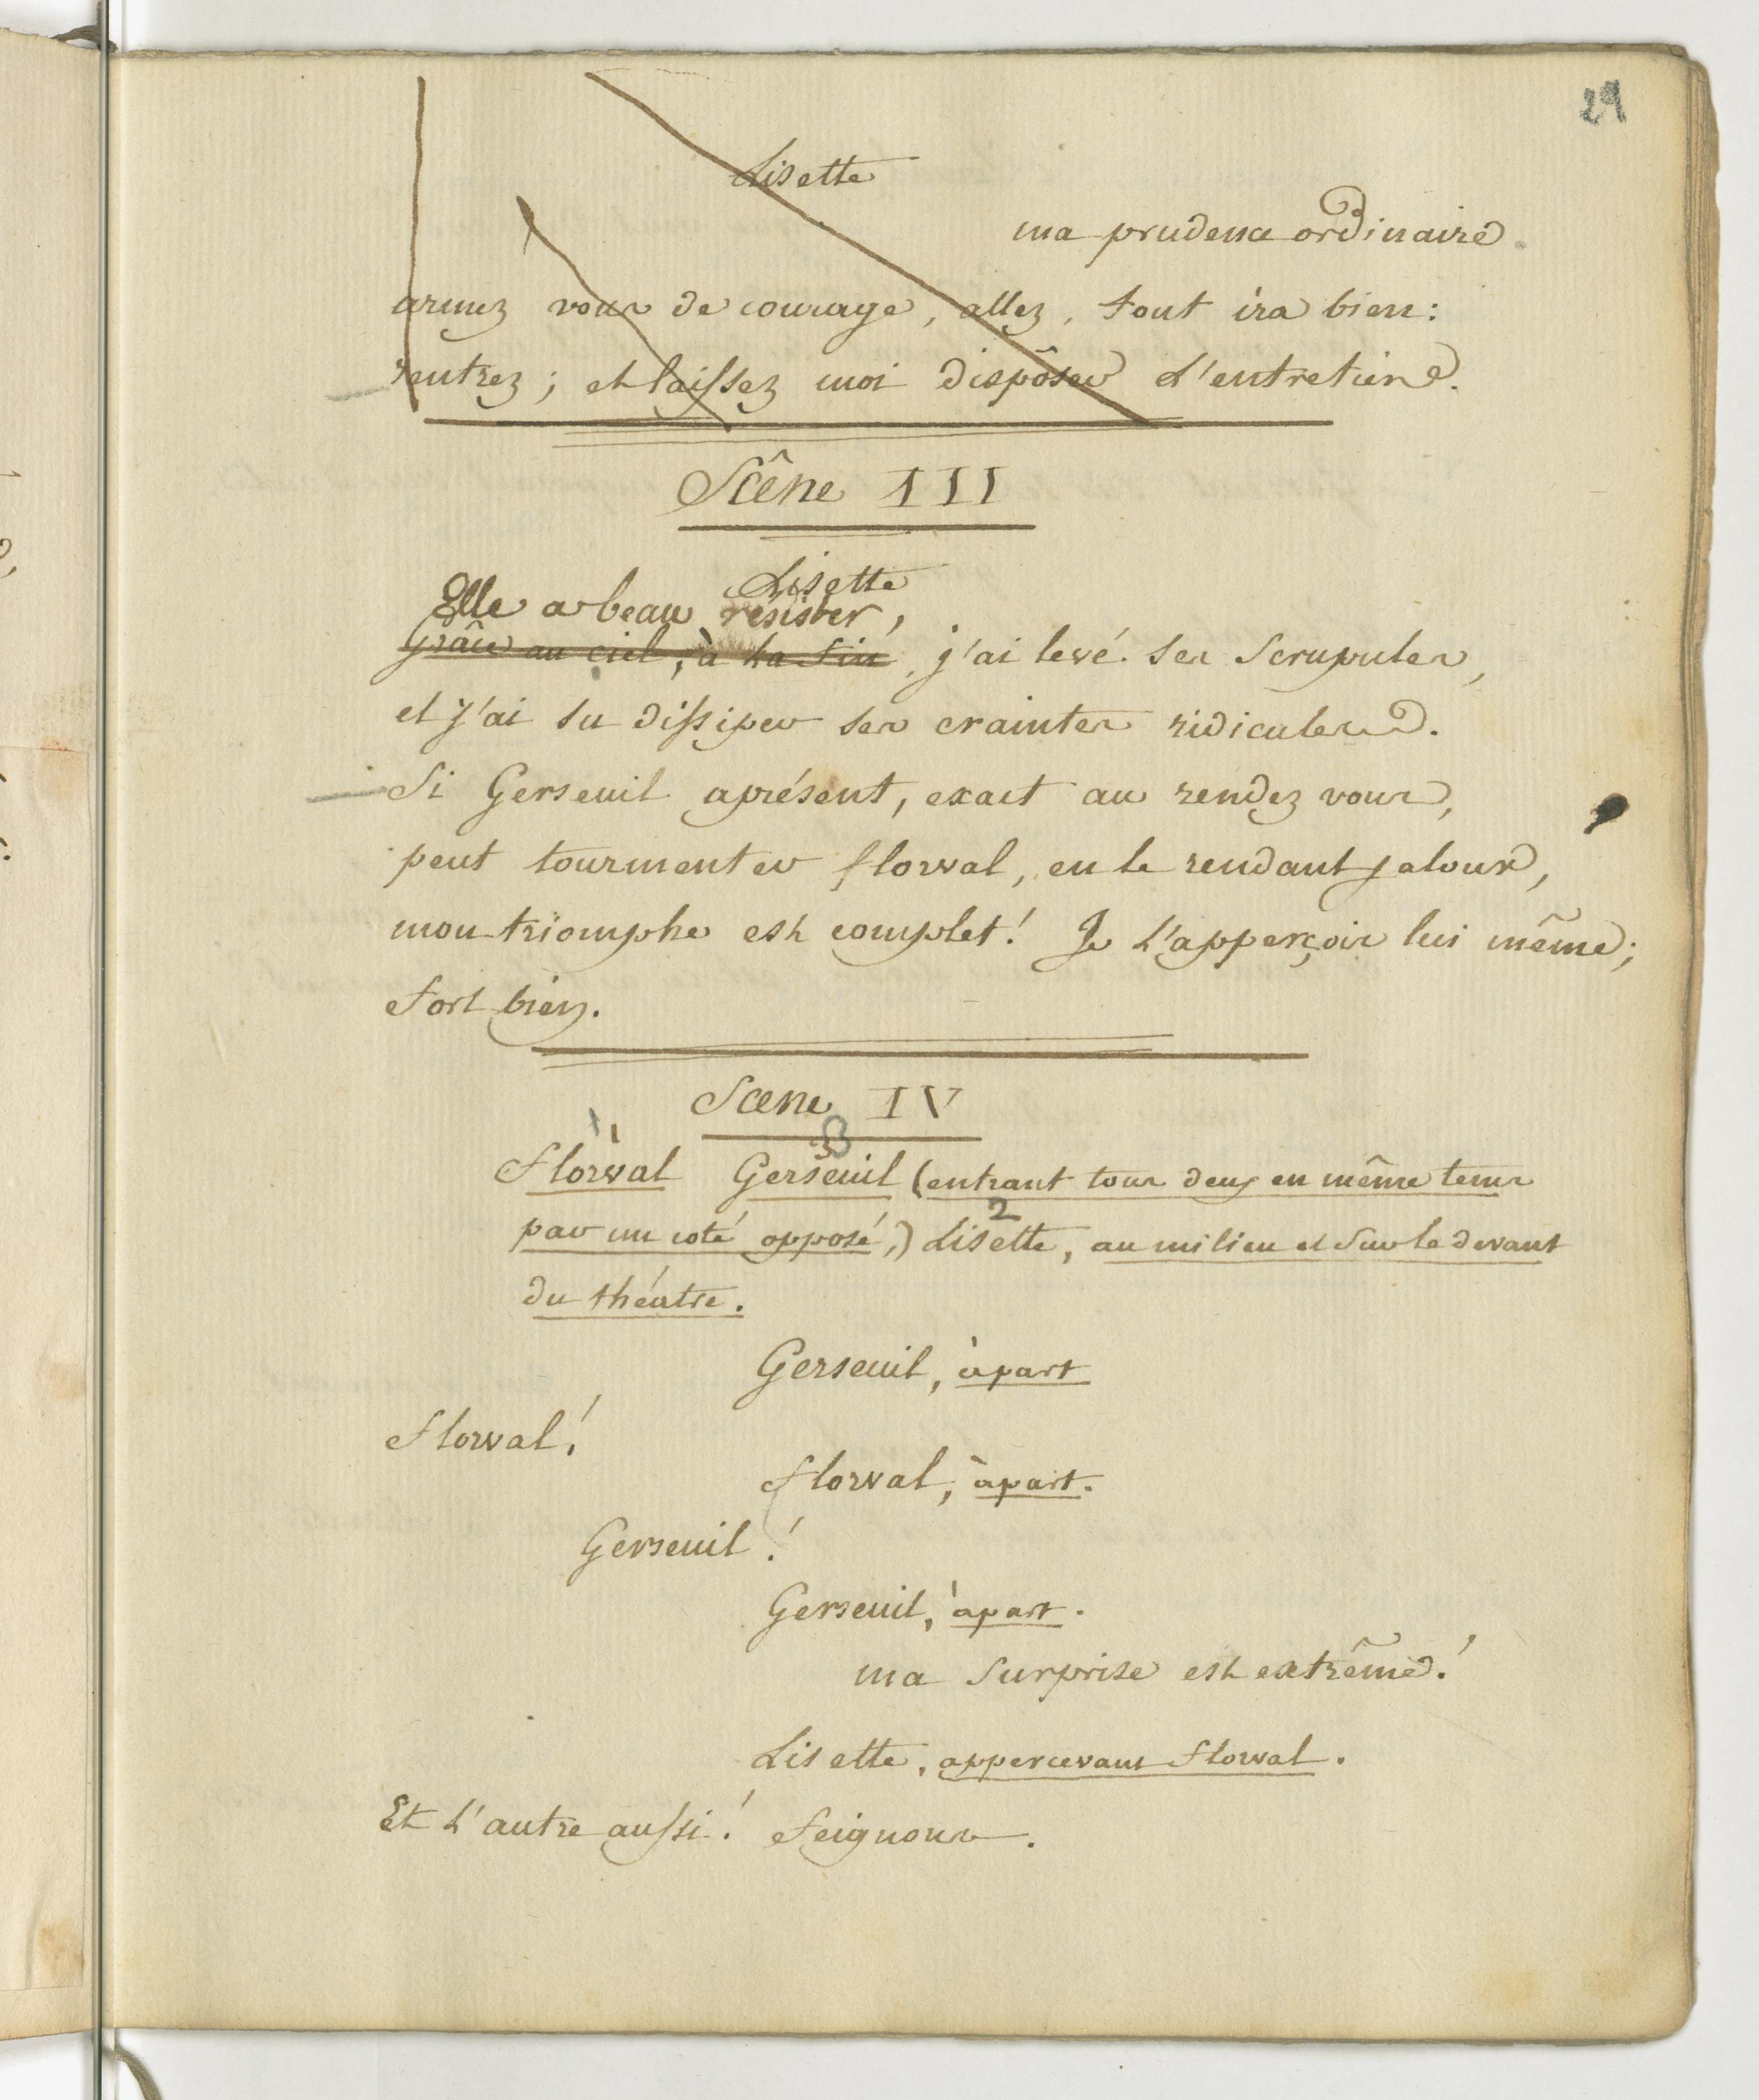 29
Lisette
ma prudence ordinaire
armez vous de courage, allez, tout ira bien:
rentrez; et laissez moi dispôser l'entretien.
Scêne III
Lisette
Elle a beau résister,
grâce au ciel, à la fin, j'ai levé ses scrupules,
et j'ai su dissiper ses craintes ridicules.
Si Gerseuil aprésent, exact au rendez vous,
peut tourmenter florval, en le rendant jaloux,
mon triomphe est complet! Je l'apperçois lui même;
fort bien.
Scene IV
1 3
florval Gerseuil (entrant tous deux en même tems
2
par un coté opposé,) Lisette, au milieu et sur le devant
du théatre.
Gerseuil, àpart
florval!
florval, àpart.
Gerseuil!
Gerseuil, àpart.
ma surprise est extrême!
Lisette, appercevant florval.
Et l'autre aussi! feignons.